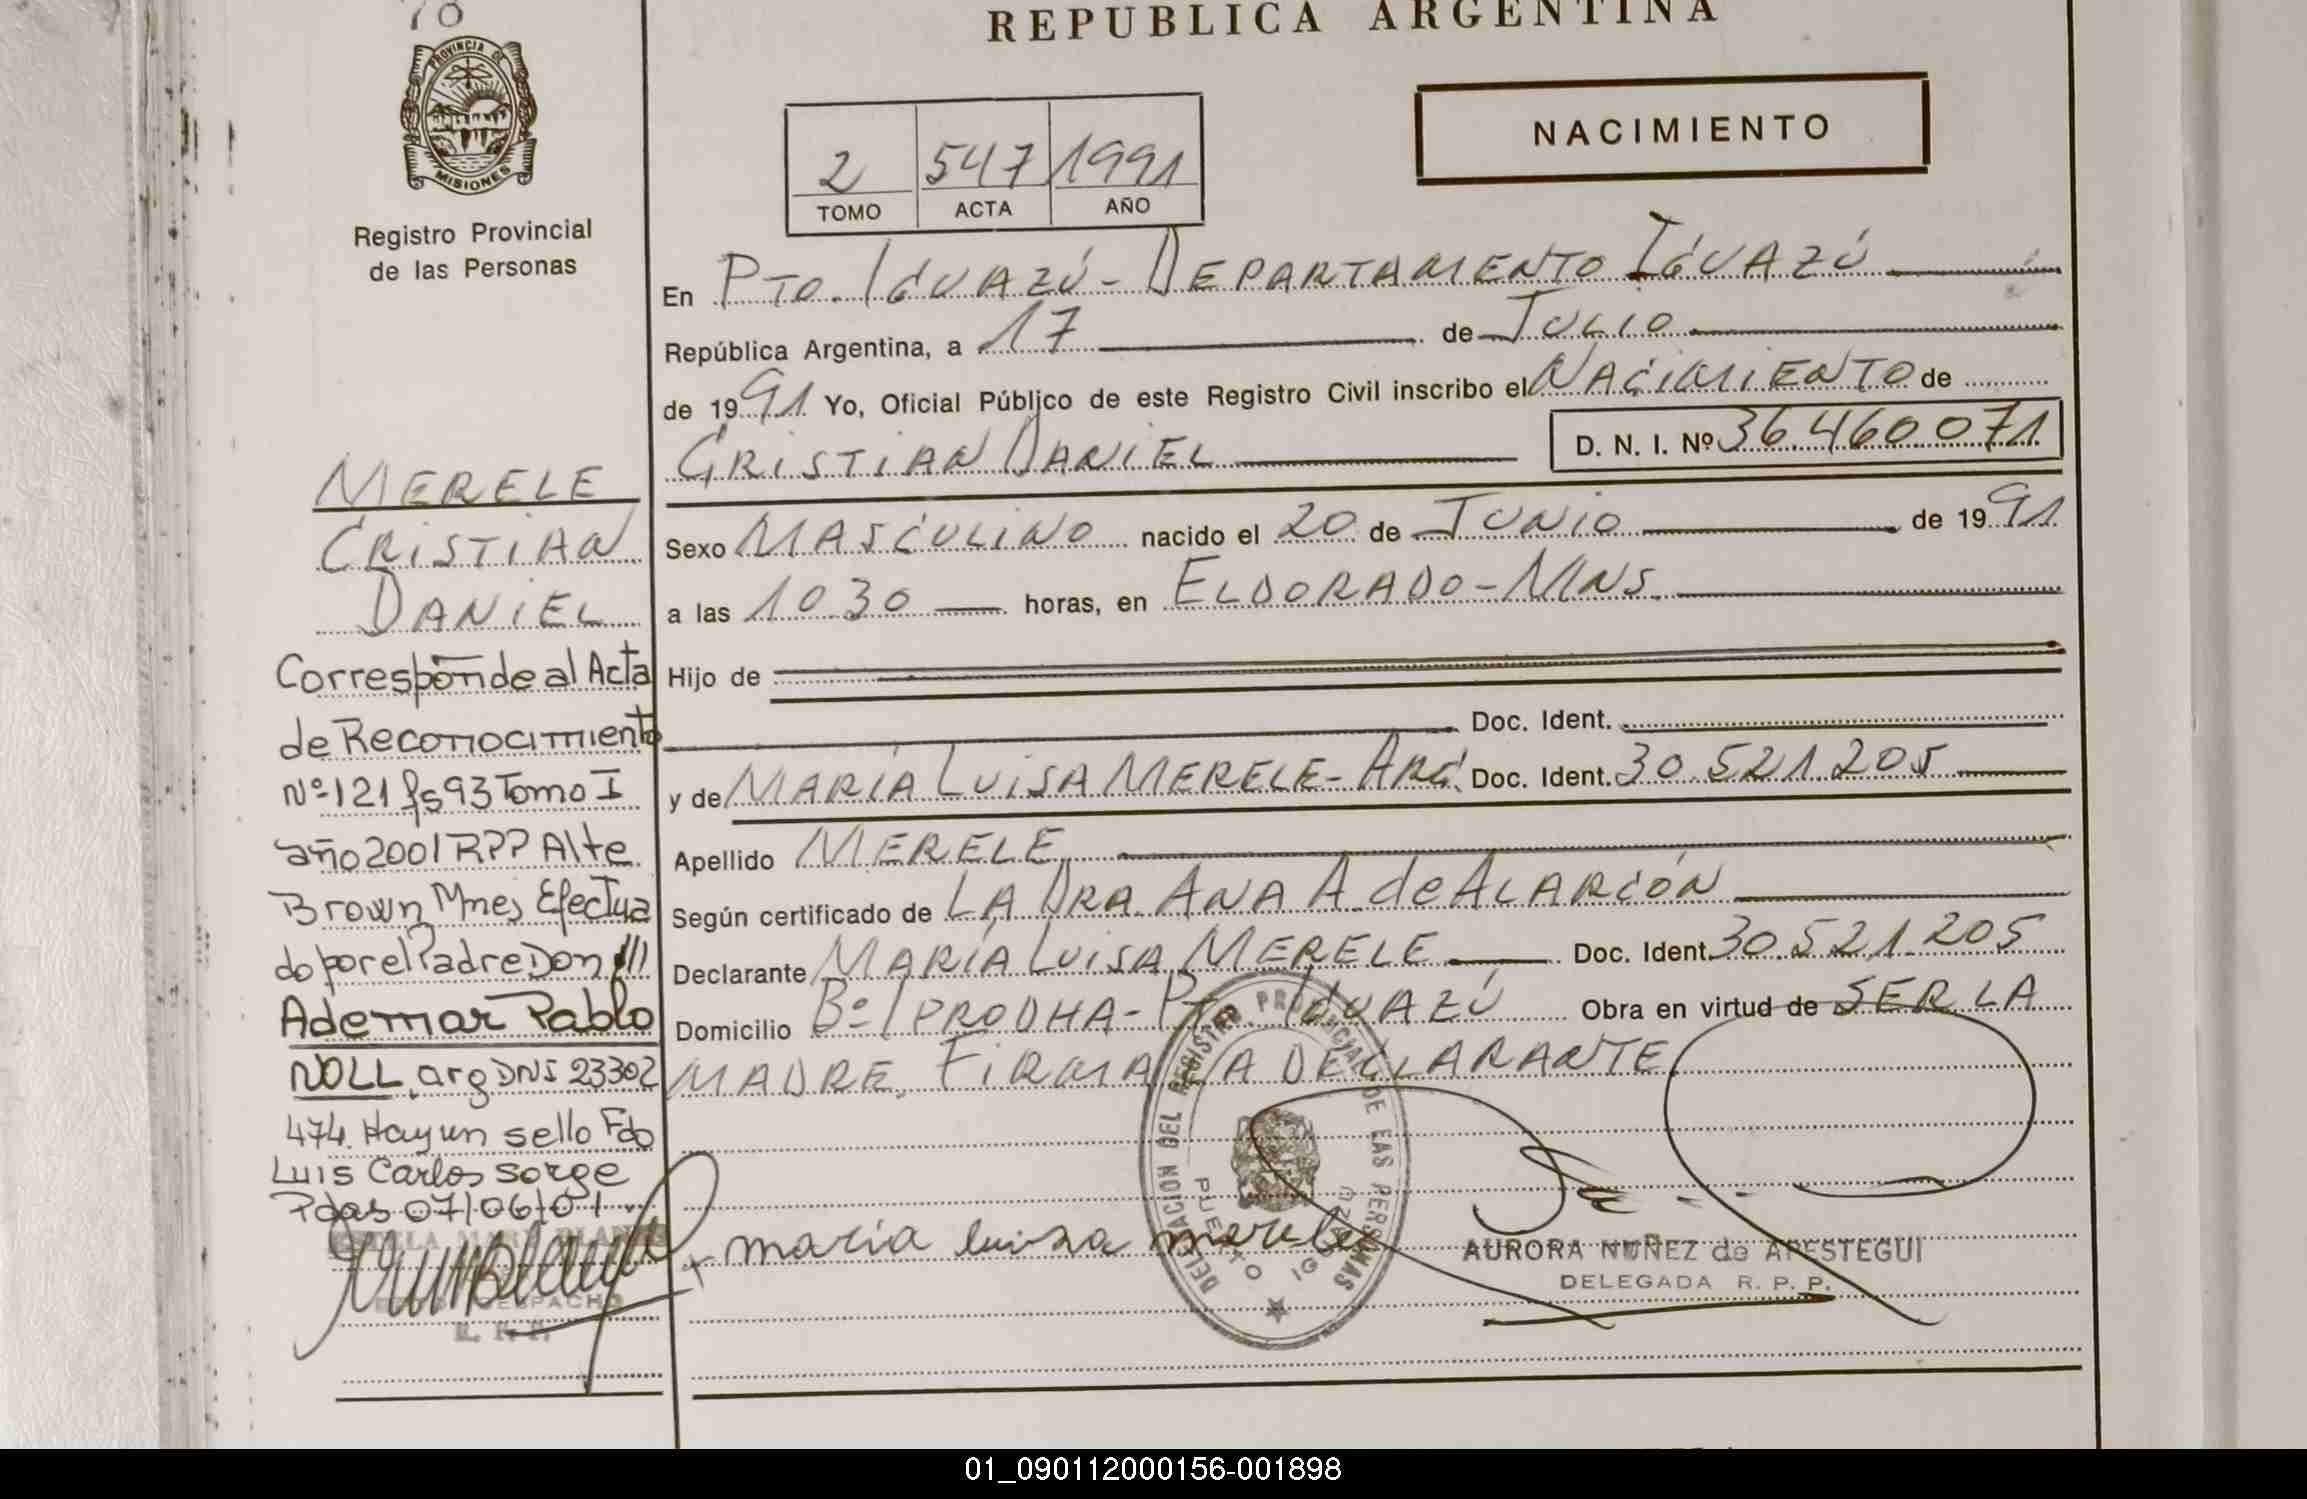 70
REPUBLICA ARGENTINA
PROVINCIA DE
MISIONES
Registro Provincial
de las Personas
NACIMIENTO
2 547 1991
TOMO ACTA AÑO
En PTO. IGUAZÚ - DEPARTAMENTO IGUAZÚ
República Argentina, a 17 de JULIO
de 1991 Yo, Oficial Público de este Registro Civil inscribo el NACIMIENTO de
CRISTIAN DANIEL D. N. I. Nº 36.460.071
Sexo MASCULINO nacido el 20 de JUNIO de 1991
a las 10 30 horas, en ELDORADO - MNS.
Hijo de
Doc. Ident.
y de MARÍA LUISA MERELE - ARG. Doc. Ident. 30.521.205
Apellido MERELE
Según certificado de LA DRA. ANA A. de ALARCÓN
Declarante MARÍA LUISA MERELE Doc. Ident. 30.521.205
Domicilio Bº IPRODHA - PTO. IGUAZÚ Obra en virtud de SER LA
MADRE. FIRMA LA DECLARANTE.
MERELE
CRISTIAN
DANIEL
Corresponde al Acta
de Reconocimiento
Nº 121 fs 93 Tomo I
año 2001 RPP Alte
Brown Mnes Efectua
do por el Padre Don
Ademar Pablo
NOLL arg DNI 23302
474. Hay un sello Fdo
Luis Carlos Sorge
Pdas 07/06/01
DESPACHO
R. P. P.
maria luisa merele
DELEGACION DEL REGISTRO PROVINCIAL DE LAS PERSONAS
PUERTO IGUAZU
AURORA NUÑEZ de APESTEGUI
DELEGADA R. P. P.
01_090112000156-001898